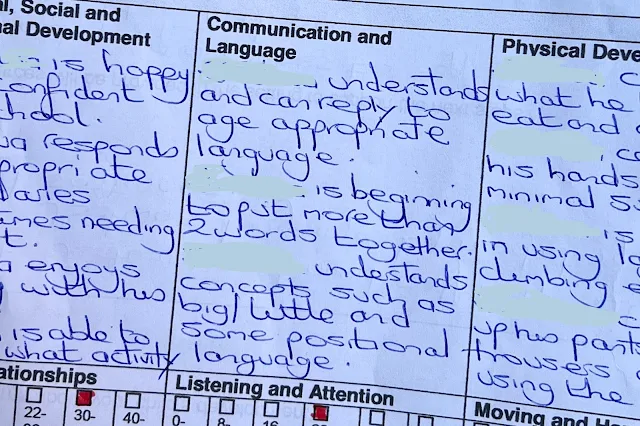 l, Social and
nal Development
is happy
confident
chool.
ua responds
propriate
daries
imes needing
t.
a enjoys
with his
is able to
what activity
Communication and
Language
understands
and can reply to
age appropriate
language.
is beginning
to put more than
2 words together.
understands
concepts such as
big/little and
some positional
language.
Physical Deve
what he
eat and
his hands
minimal s
is
in using la
climbing e
up his pant
trousers
using the
ationships
22-
30-
40-
Listening and Attention
0-
8-
16
Moving and Ha